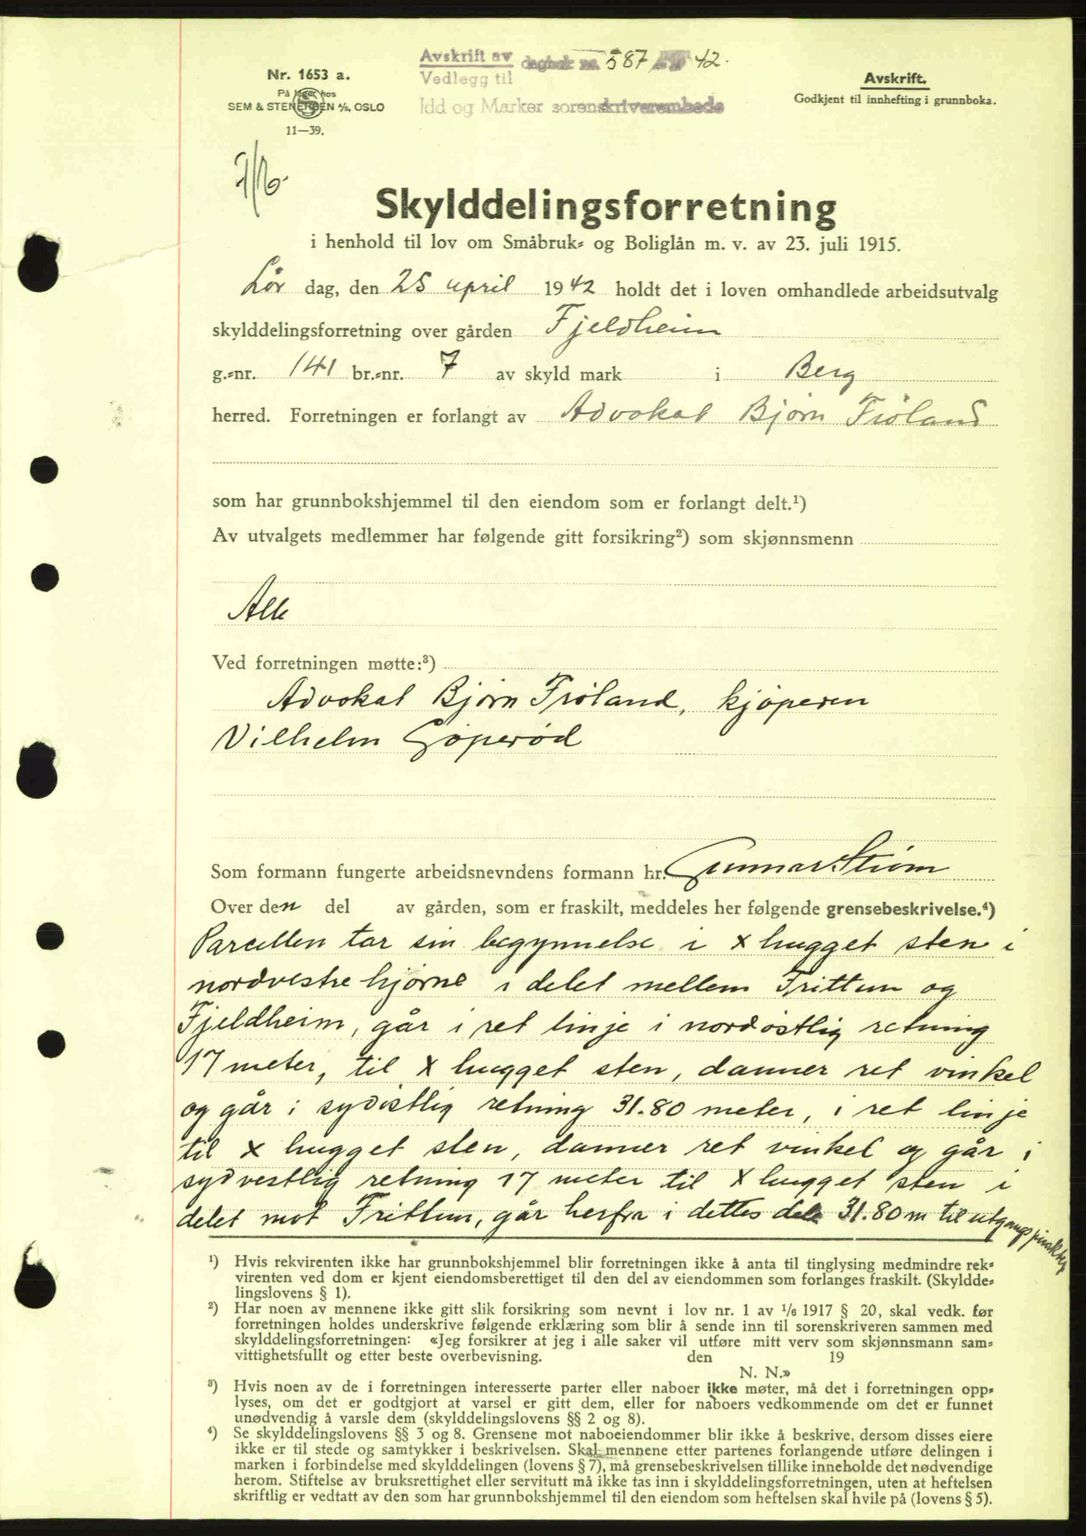 Nr. 1653 a.
På lager hos
SEM & STENERSEN A/S, OSLO
11—39.
Avskrift av dagbok nr. 587 42.
Vedlegg til
Idd og Marker sorenskriverembede
Avskrift.
Godkjent til innhefting i grunnboka.
Skylddelingsforretning
i henhold til lov om Småbruk- og Boliglån m. v. av 23. juli 1915.
Lør dag, den 25 april 1942 holdt det i loven omhandlede arbeidsutvalg
skylddelingsforretning over gården Fjeldheim
g.-nr. 141 br.-nr. 7 av skyld mark i Berg
herred. Forretningen er forlangt av Advokat Bjørn Frøland
som har grunnbokshjemmel til den eiendom som er forlangt delt.¹)
Av utvalgets medlemmer har følgende gitt forsikring²) som skjønnsmenn
Alle
Ved forretningen møtte:³)
Advokat Bjørn Frøland, kjøperen
Vilhelm Gøperød
Som formann fungerte arbeidsnevndens formann hr. Gunnar Strøm
Over den del av gården, som er fraskilt, meddeles her følgende grensebeskrivelse.⁴)
Parcellen tar sin begynnelse i x hugget sten i
nordvestre hjørne i delet mellem Frittun og
Fjeldheim, går i ret linje i nordøstlig retning
17 meter, til x hugget sten, danner ret vinkel
og går i sydøstlig retning 31.80 meter, i ret linje
til x hugget sten, danner ret vinkel og går i
sydvestlig retning 17 meter til x hugget sten i
delet mot Frittun, går herfra i dettes dele 31.80 m til utgangspunktet
¹) Hvis rekvirenten ikke har grunnbokshjemmel blir forretningen ikke å anta til tinglysing medmindre rek-
virenten ved dom er kjent eiendomsberettiget til den del av eiendommen som forlanges fraskilt. (Skyldde-
lingslovens § 1).
²) Har noen av mennene ikke gitt slik forsikring som nevnt i lov nr. 1 av 1/6 1917 § 20, skal vedk. før
forretningen holdes underskrive følgende erklæring som blir å sende inn til sorenskriveren sammen med
skylddelingsforretningen: «Jeg forsikrer at jeg i alle saker vil utføre mitt verv som skjønnsmann sam-
vittighetsfullt og etter beste overbevisning. den 19
N. N.»
³) Hvis noen av de i forretningen interesserte parter eller naboer ikke møter, må det i forretningen opp-
lyses, om det er godtgjort at varsel er gitt dem, eller for naboers vedkommende om det er funnet
unødvendig å varsle dem (skylddelingslovens §§ 2 og 8).
⁴) Se skylddelingslovens §§ 3 og 8. Grensene mot naboeiendommer blir ikke å beskrive, dersom disses eiere
ikke er til stede og samtykker i beskrivelsen. Skal mennene etter partenes forlangende utføre delingen i
marken i forbindelse med skylddelingen (lovens § 7), må grensebeskrivelsen tillike inneholde det nødvendige
herom. Stiftelse av bruksrettighet eller servitutt må ikke tas inn i skylddelingsforretningen, uten at heftelsen
skriftlig er vedtatt av den som har grunnbokshjemmel til den eiendom som heftelsen skal hvile på (lovens § 5).